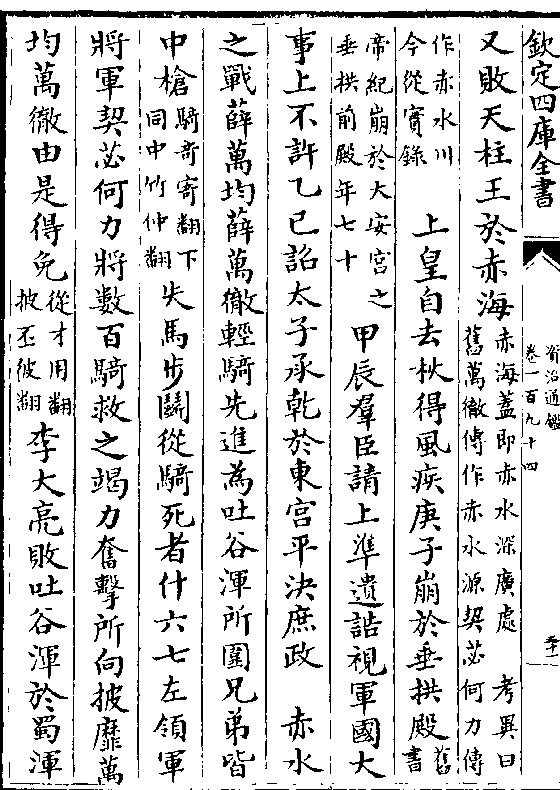 欽定四庫全書
資治通鑑
卷一百九十四
又敗天柱王於赤海赤海蓋即赤水深廣處 考異曰舊萬徹傳作赤水源契苾何力傳
作赤水川今從實錄 上皇自去秋得風疾庚子崩於垂拱殿舊書
帝紀崩於大安宮之垂拱前殿年七十 甲辰羣臣請上準遺誥視軍國大
事上不許乙巳詔太子承乾於東宮平決庶政 赤水
之戰薛萬均薛萬徹輕騎先進為吐谷渾所圍兄弟皆
中槍騎奇寄翻下同中竹仲翻失馬步鬬從騎死者什六七左領軍
將軍契苾何力將數百騎救之竭力奮擊所向披靡萬
均萬徹由是得免從才用翻披丕彼翻李大亮敗吐谷渾於蜀渾